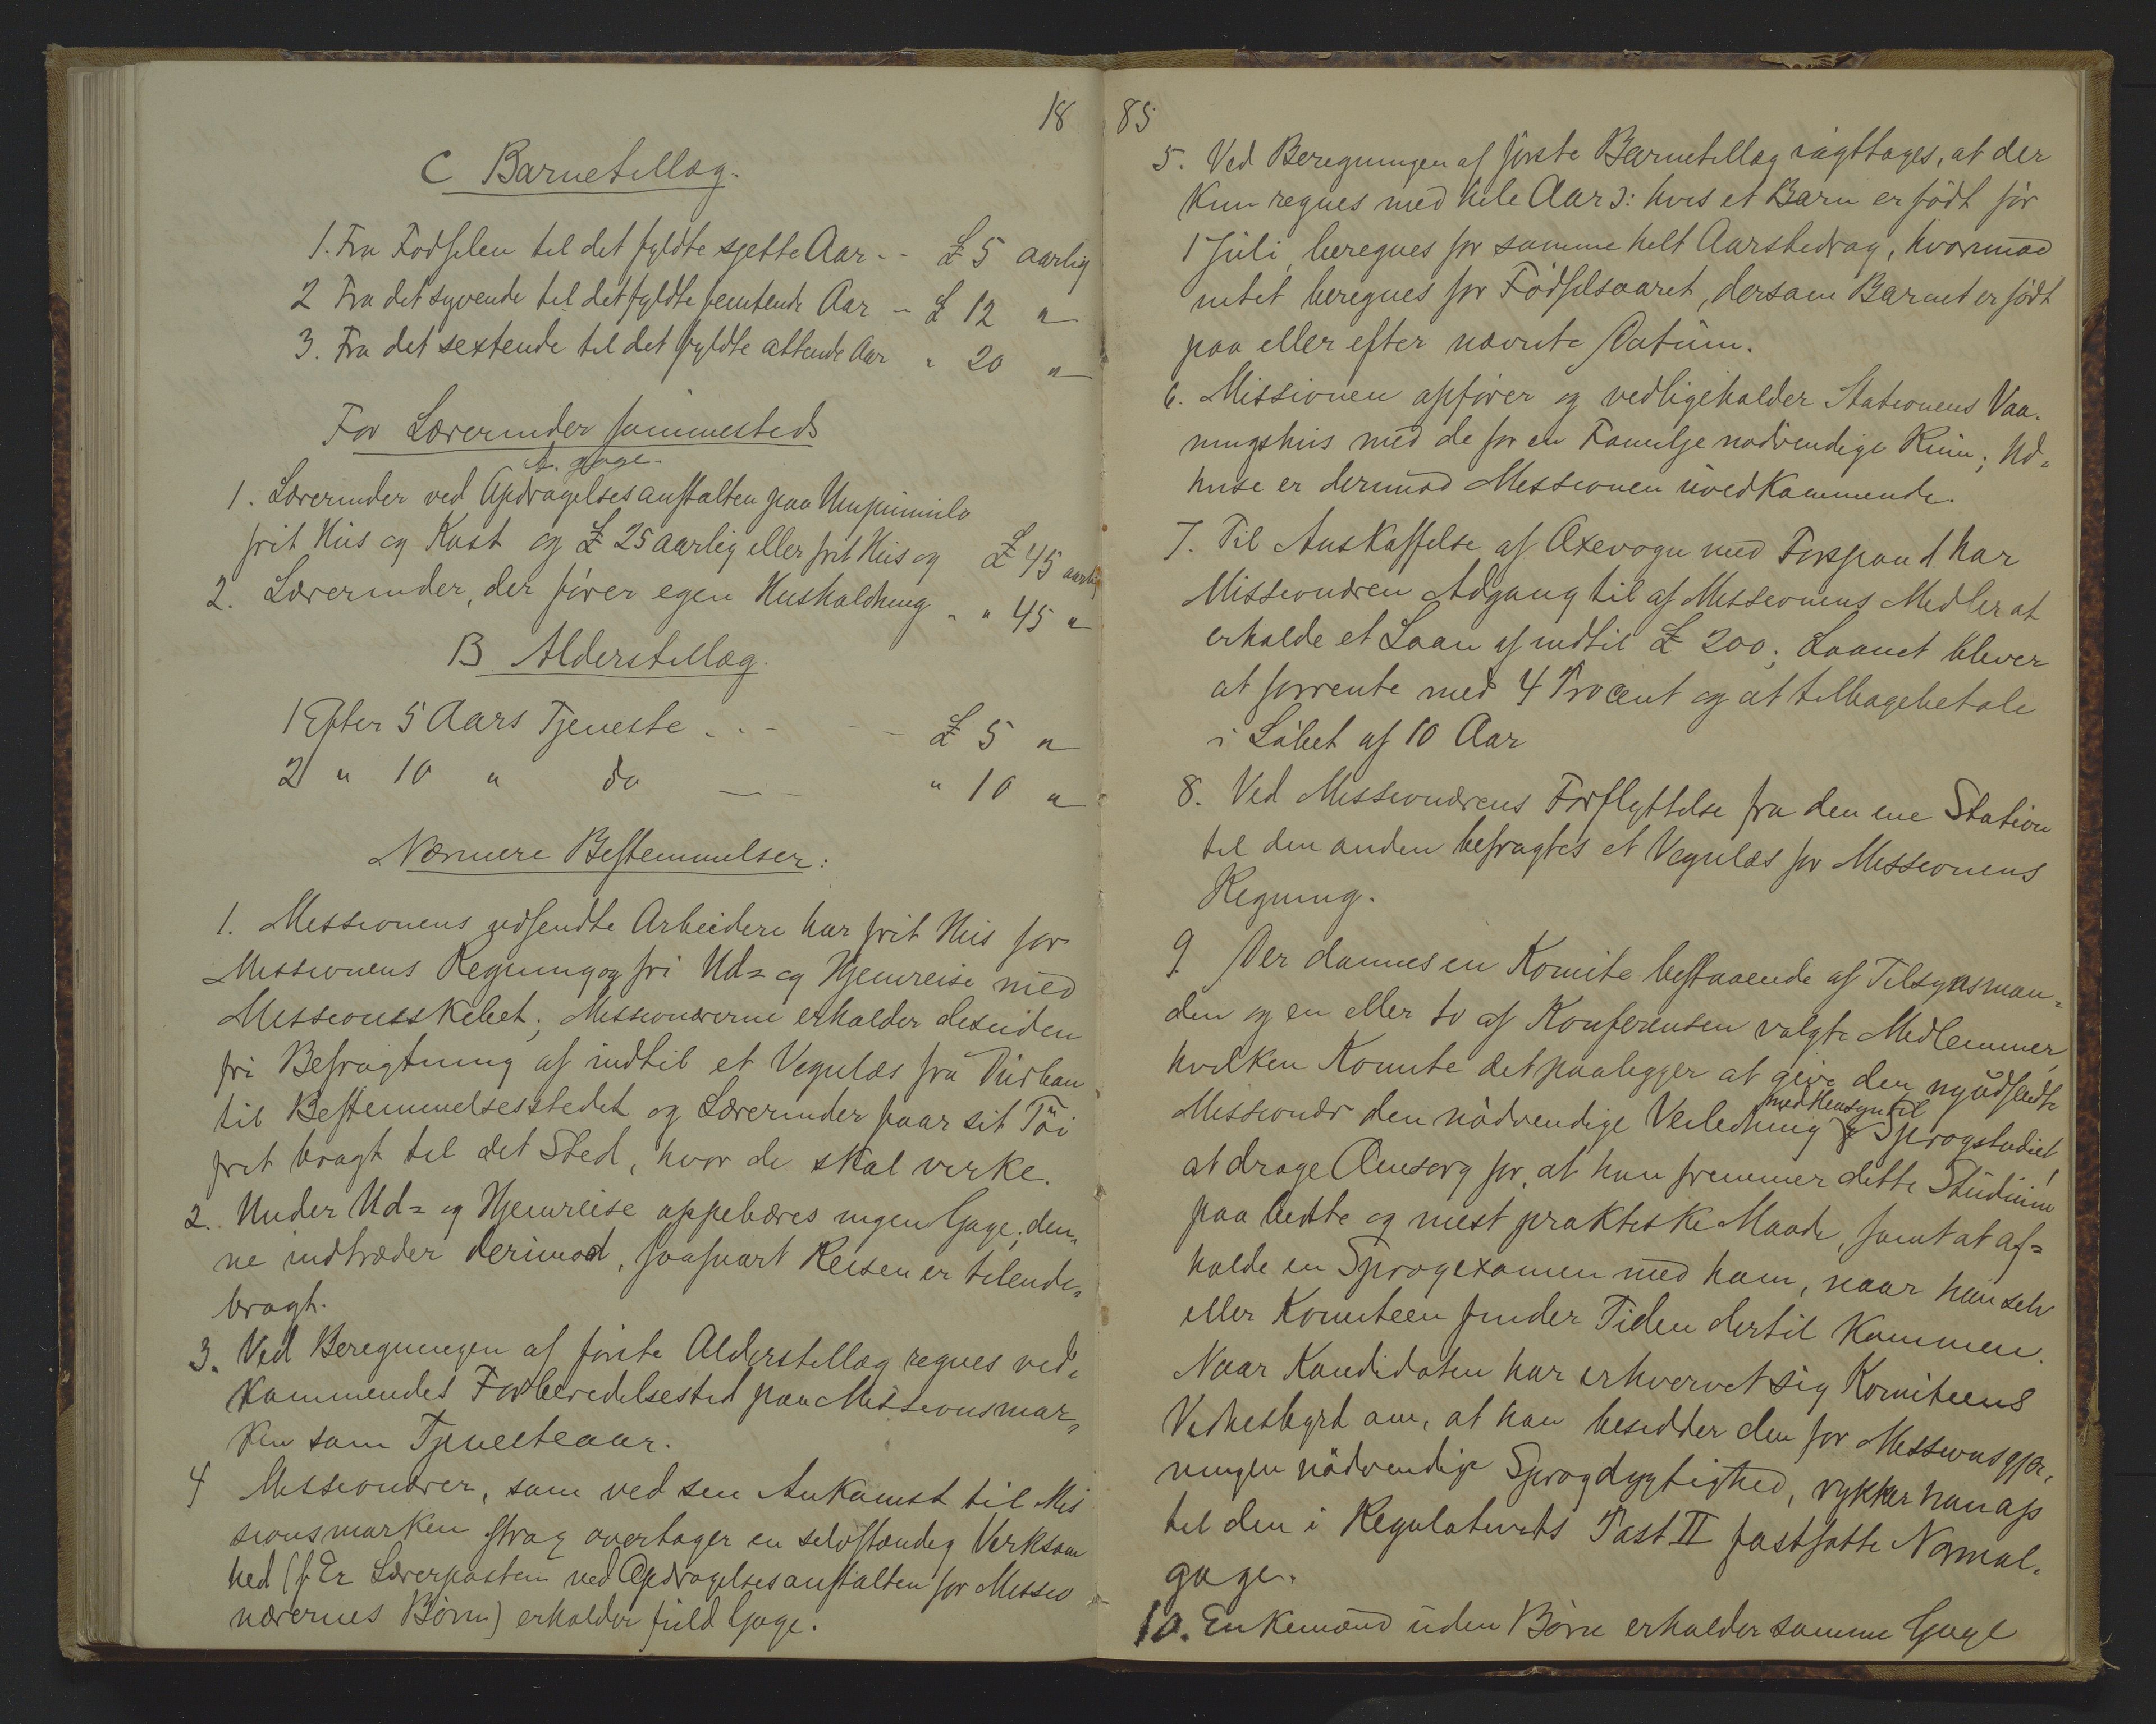 18
C Barnetillæg.
1. Fra Fødselen til det fyldte sjette Aar - - £ 5 aarlig
2 Fra det syvende til det fyldte femtende Aar - £ 12 "
3. Fra det sextende til det fyldte attende Aar " 20 "
For Lærerinder sammesteds
A. gage.
1. Lærerinder ved Opdragelsesanstalten paa Umpumulo
frit Hus og Kost og £ 25 aarlig eller frit Hus og £ 45 aarlig
2. Lærerinder, der fører egen Husholdning - " 45 "
B Alderstillæg.
1 Efter 5 Aars Tjeneste - - - £ 5 "
2 " 10 " do — - " 10 "
Nærmere Bestemmelser:
1. Missionens udsendte Arbeidere har frit Hus for
Missionens Regning og fri Ud= og Hjemreise med
Missionsskibet; Missionærerne erholder desuden
fri Befragtning af indtil et Vognlæs fra Durban
til Bestemmelsesstedet og Lærerinder faar sit Töi
frit bragt til det Sted, hvor de skal virke.
2. Under Ud= og Hjemreise oppebæres ingen Gage; den=
ne indtræder derimod, saasnart Reisen er tilende=
bragt.
3. Ved Beregningen af første Alderstillæg regnes ved=
kommendes Forberedelsestid paa Missionsmar=
ken som Tjenesteaar.
4 Missionærer, som ved sin Ankomst til Mis
sionsmarken strax overtager en selvstændig Virksom
hed (f. Ex Lærerposten ved Opdragelsesanstalten for Missio
nærernes Børn) erholder fuld Gage.
85
5. Ved Beregningen af første Barnetillæg iagttages, at der
kun regnes med hele Aar ɔ: hvis et Barn er født før
1 Juli, beregnes for samme helt Aarsbedrag, hvorimod
intet beregnes for Fødselsaaret, dersom Barnet er født
paa eller efter nævnte Datum.
6. Missionen opfører og vedligeholder Stationens Vaa=
ningshus med de for en Familje nødvendige Rum; Ud=
huse er derimod Missionen uvedkommende.
7. Til Anskaffelse af Oxevogn med Forspand har
Missionæren Adgang til af Missionens Midler at
erholde et Laan af indtil £ 200; Laanet bliver
at forrente med 4 Procent og at tilbagebetale
i Löbet af 10 Aar
8. Ved Missionærens Forflyttelse fra den ene Station
til den anden befragtes et Vognlæs for Missionens
Regning.
9 Der dannes en Komite bestaaende af Tilsynsman=
den og en eller to af Konferensen valgte Medlemmer,
hvilken Komite det paaligger at give den nyudsendte
Missionær den nödvendige Veiledning med Hensyn til Sprogstudiet,
at drage Omsorg for, at han fremmer dette Studium
paa bedste og mest praktiske Maade, samt at af=
holde en Sprogexamen med ham, naar han selv
eller Komiteen finder Tiden dertil kommen.
Naar Kandidaten har erhvervet sig Komiteens
Vidnesbyrd om, at han besidder den for Missionsgjer=
ningen nödvendige Sprogdygtighed, rykker han op
til den i Regulativets Post II fastsatte Normal=
gage.
10. Enkemænd uden Børn erholder samme Gage